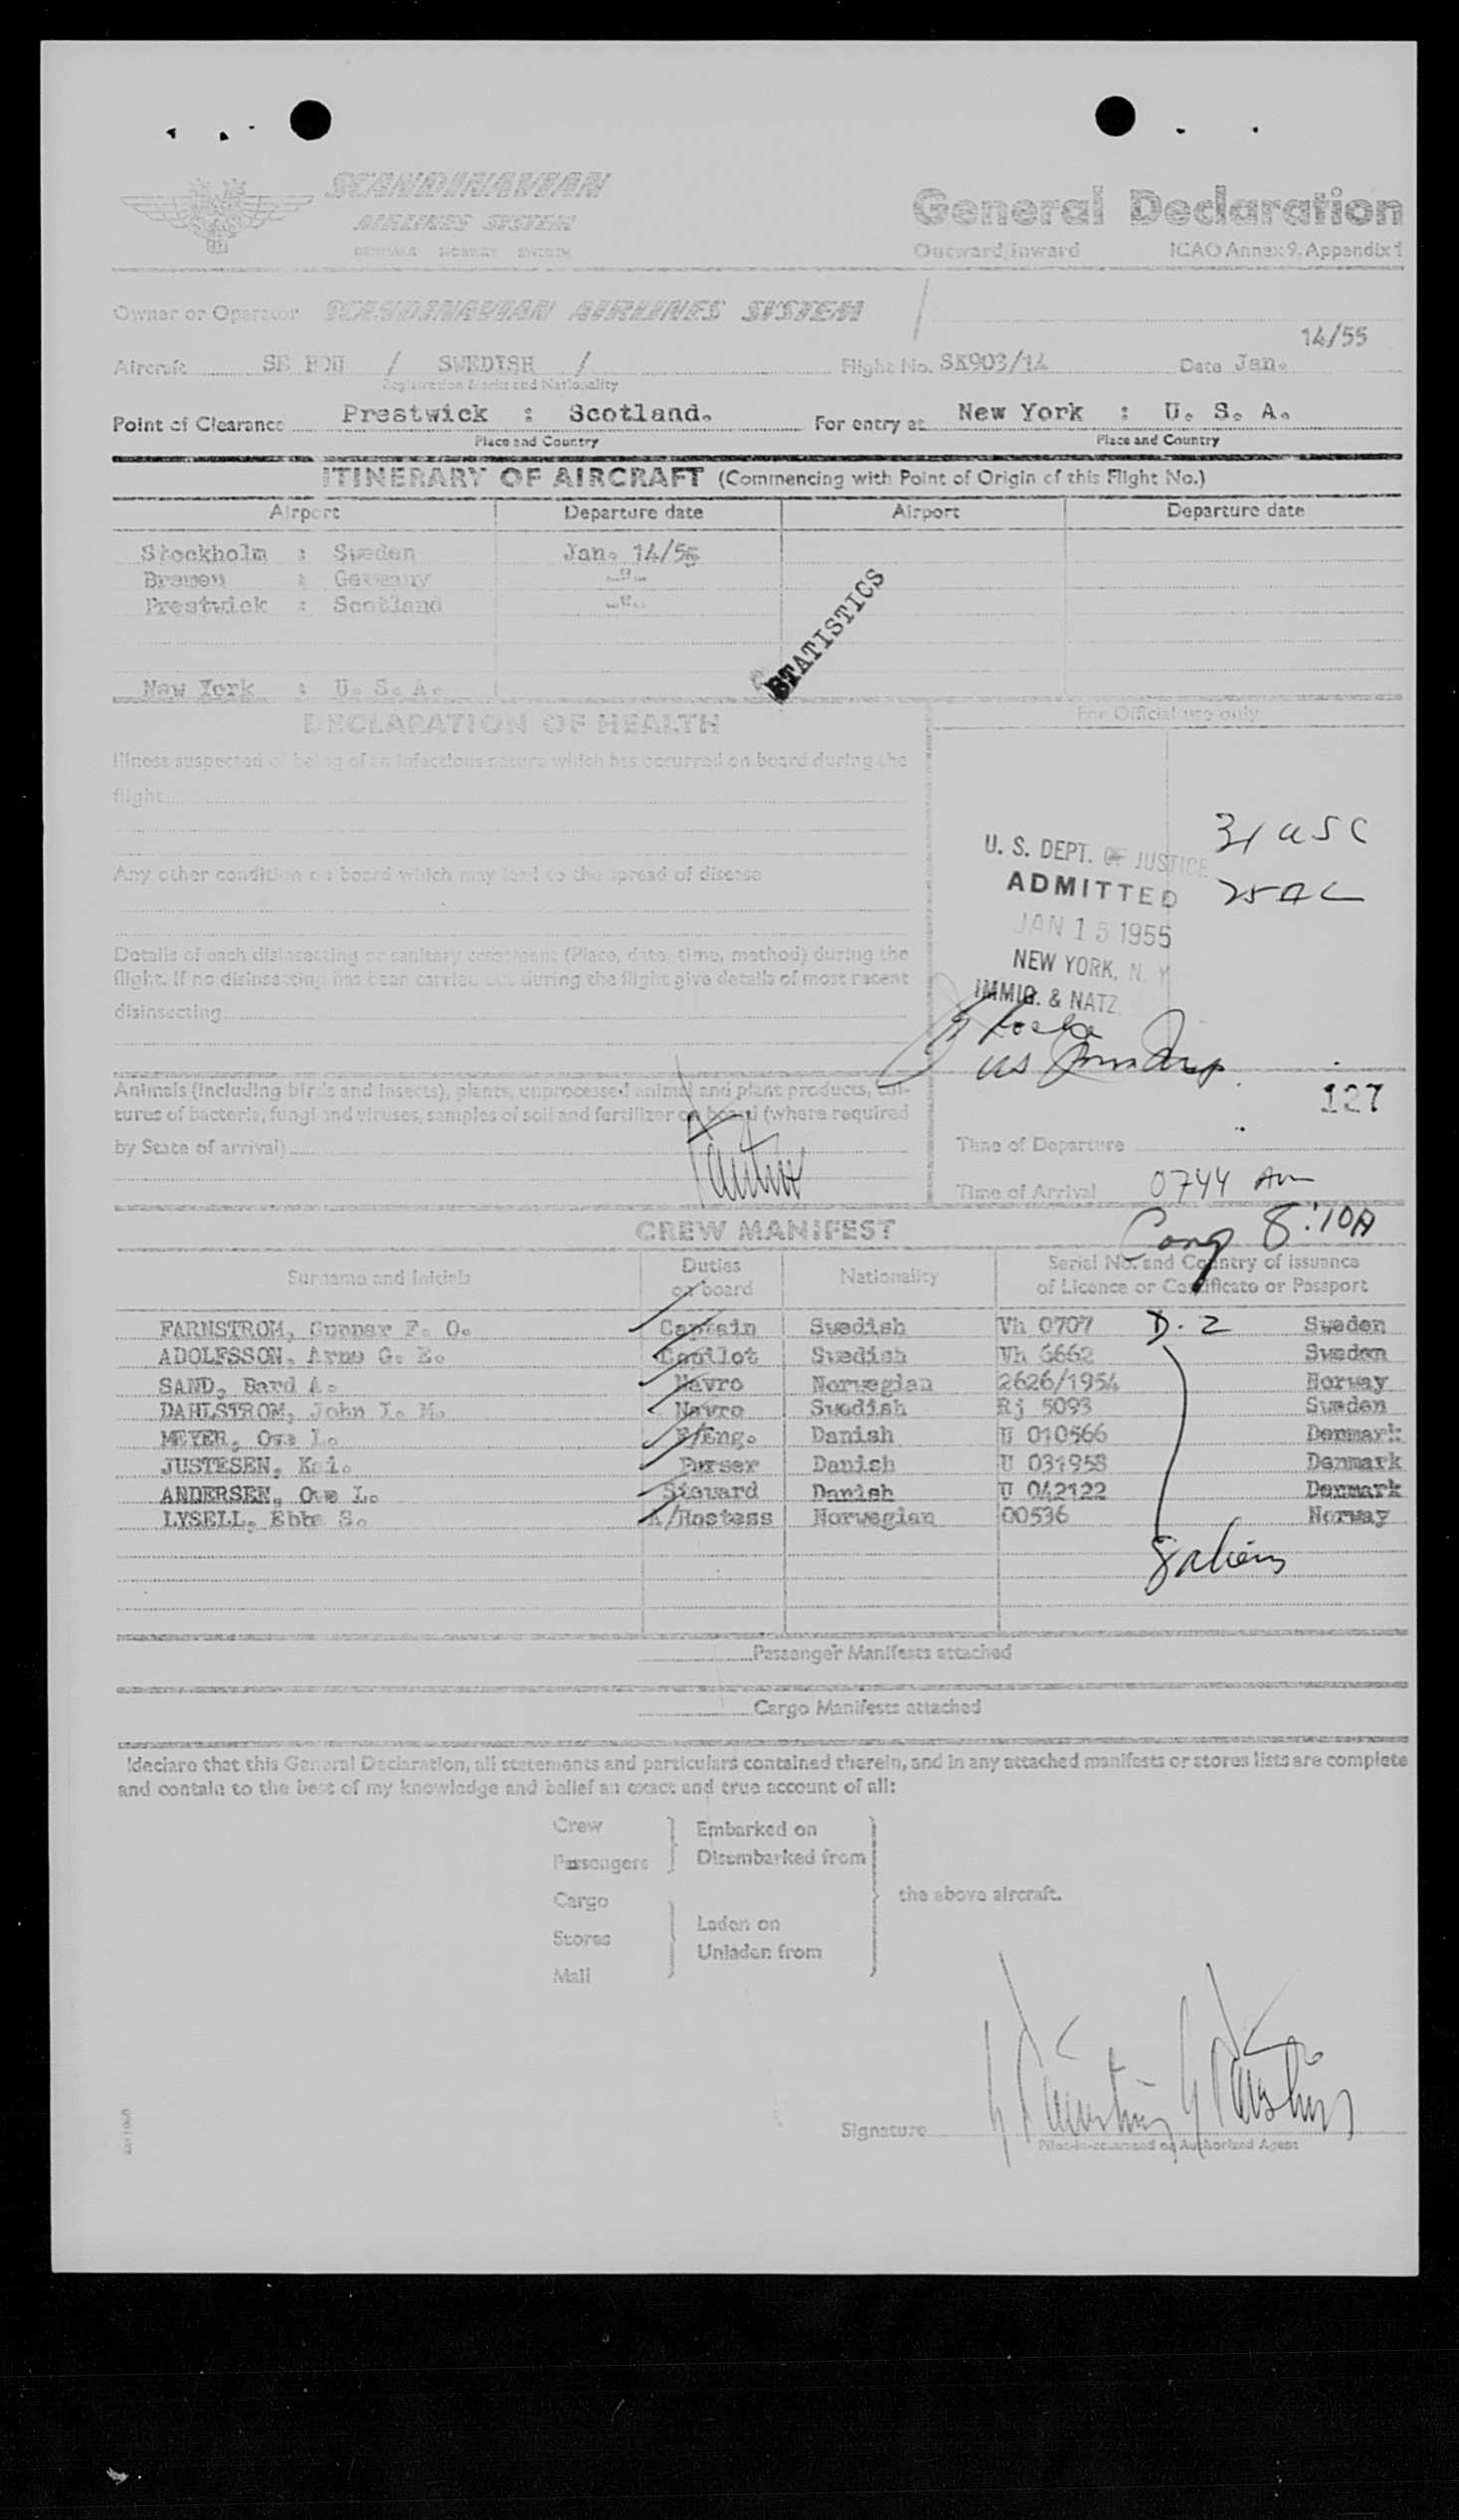 SCANDINAVIAN
AIRLINES SYSTEM
DENMARK NORWAY SWEDEN
General Declaration
Outward/Inward ICAO Annex 9, Appendix 1
Owner or Operator SCANDINAVIAN AIRLINES SYSTEM /
14/55
Aircraft SE BDU / SWEDISH / Flight No. SK903/14 Date Jan.
Registration Marks and Nationality
Point of Clearance Prestwick : Scotland. For entry at New York : U. S. A.
Place and Country Place and Country
ITINERARY OF AIRCRAFT (Commencing with Point of Origin of this Flight No.)
Airport Departure date Airport Departure date
Stockholm : Sweden Jan. 14/55
Bremen : Germany -"-
Prestwick : Scotland -"-
STATISTICS
New York : U. S. A.
DECLARATION OF HEALTH
For Official use only
Illness suspected of being of an infectious nature which has occurred on board during the
flight
Any other condition on board which may lead to the spread of disease
Details of each disinsecting or sanitary treatment (Place, date, time, method) during the
flight. If no disinsecting has been carried out during the flight give details of most recent
disinsecting
31 USC
U. S. DEPT. OF JUSTICE
ADMITTED
25 AL
JAN 15 1955
NEW YORK, N. Y.
IMMIG. & NATZ.
Animals (including birds and insects), plants, unprocessed animal and plant products, cul-
tures of bacteria, fungi and viruses, samples of soil and fertilizer on board (where required
by State of arrival)
127
Time of Departure
Time of Arrival 0744 Am
8:10A
CREW MANIFEST
Surname and Initials Duties on board Nationality Serial No. and Country of issuance of Licence or Certificate or Passport
FARNSTROM, Gunnar F. O. Captain Swedish Vh 0707 D-2 Sweden
ADOLFSSON, Arne G. E. Copilot Swedish Vh 6662 Sweden
SAND, Bard A. Navro Norwegian 2626/1954 Norway
DAHLSTROM, John I. M. Navro Swedish Rj 5093 Sweden
MEYER, Ove L. F/Eng. Danish U 010566 Denmark
JUSTESEN, Kai. Purser Danish U 031958 Denmark
ANDERSEN, Ove L. Steward Danish U 042122 Denmark
LYSELL, Ebba S. A/Hostess Norwegian 00536 Norway
8 aliens
Passenger Manifests attached
Cargo Manifests attached
I declare that this General Declaration, all statements and particulars contained therein, and in any attached manifests or stores lists are complete
and contain to the best of my knowledge and belief an exact and true account of all:
Crew Embarked on
Passengers Disembarked from
Cargo the above aircraft.
Laden on
Stores
Unladen from
Mail
Signature
Pilot-in-command or Authorized Agent